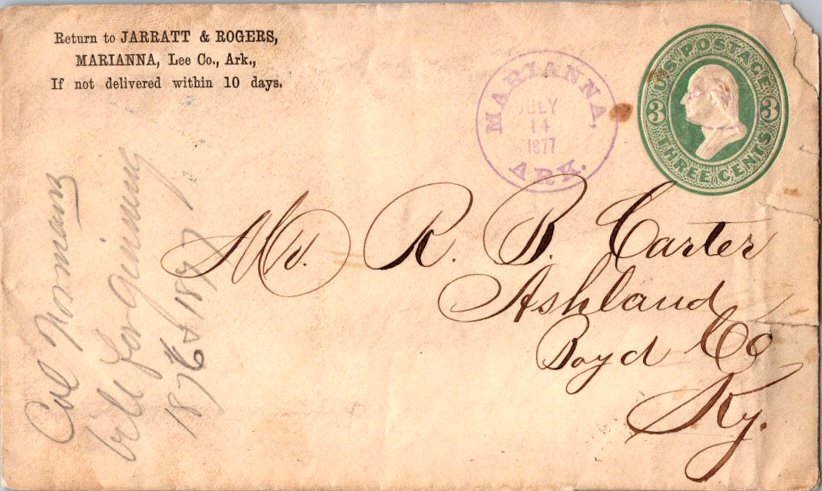 Return to JARRATT & ROGERS,
MARIANNA, Lee Co., Ark.,
If not delivered within 10 days.
MARIANNA,
JULY
14
1877
ARK.
U.S. POSTAGE
3 3
THREE CENTS
Mr. R. B. Carter
Ashland
Boyd Co
Ky.
Col Normans
bill for ginning
1876 & 1877